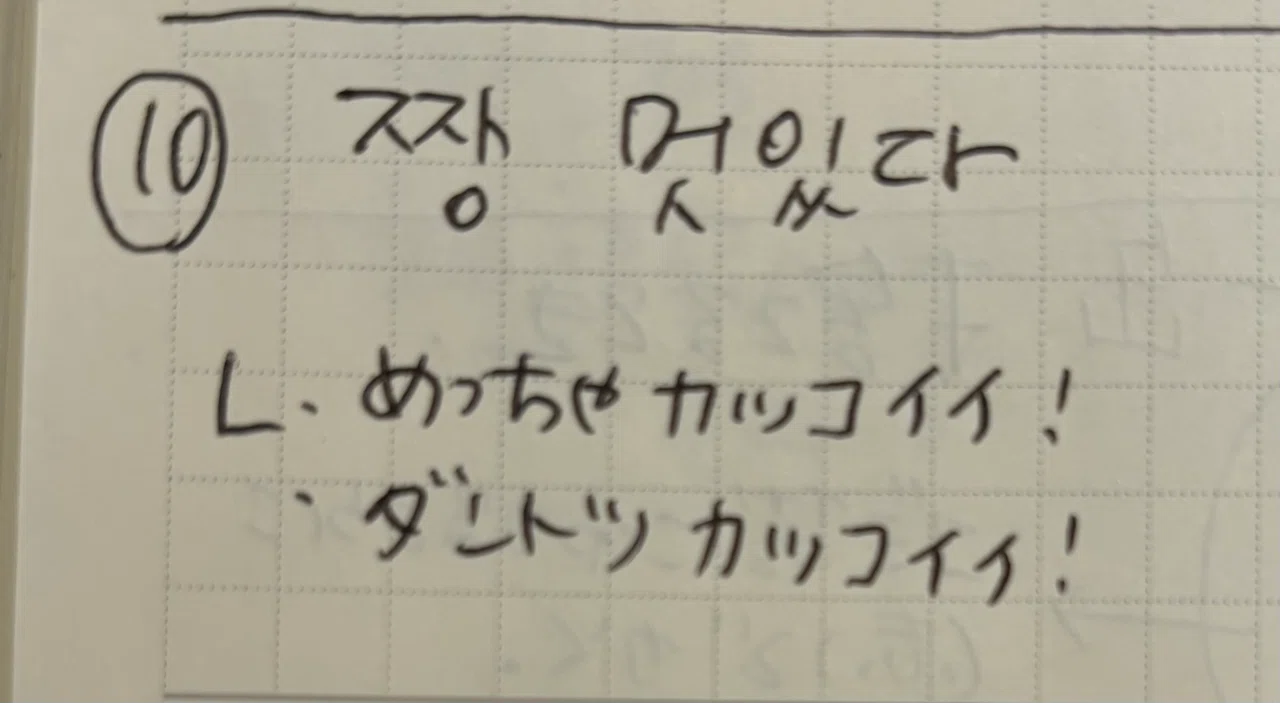 ⑩ 짱 멋있다
L・めっちゃカッコイイ！
・ダントツカッコイイ！